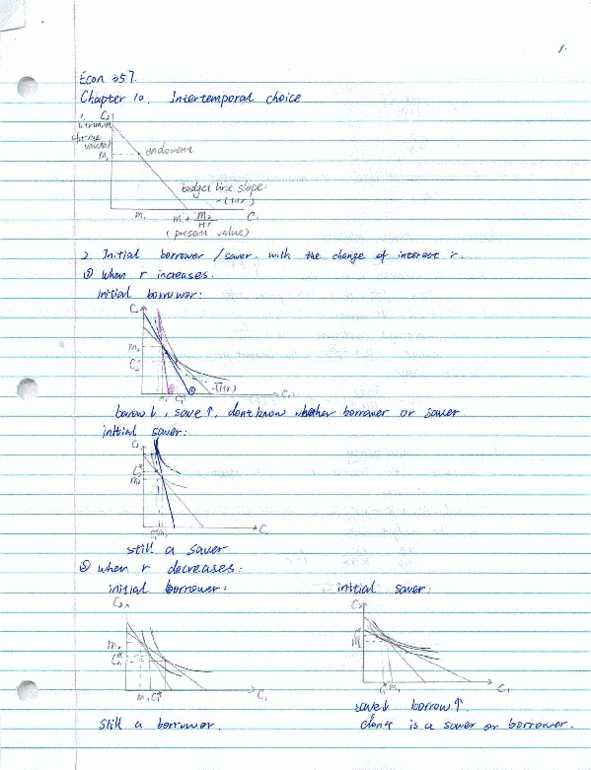 1.
Econ 357.
Chapter 10. Intertemporal choice
1.
C2
(future
value)
m2
endowent
budget line slope:
-(1+r)
m1 m1+ m2/1+r C1
(present value)
2. Initial borrower / saver with the change of interest r.
① When r increases.
initial borrower:
C2
m2
C2*
-(1+r)
C1* C1
borrow↓, save↑, dont know whether borrower or saver
initial saver:
C2
C2*
m2
C1
still a saver
② when r decreases:
initial borrower: initial saver:
C2 C2
m2
C2*
m1 C1* C1
C1* m1 C1
save↓ borrow↑.
still a borrower. dont is a saver or borrower.